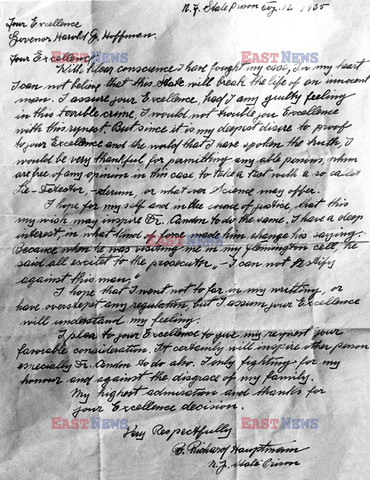 N.J. State Prison Aug. 12 1935
Your Excellence
Governor Harold G. Hoffmann.
Your Excellency:
With clear conscience I have fought my case, in my heart
I can not belong that this State will break the life of an innocent
man. I assure your Excellence, had I any guilty feeling
in this terrible crime, I would not trouble you Excellence
with this request. But since it is my deepest disere to proof
to your Excellence and the world that I have spoken the truth, I
would be very thankful for permitting any able person, whom
are free of any opinion in this case to take a test with a so called
Lie-Detector, -Serum, or what ever Science may offer.
I hope for my self and in the course of justice, that this
my wish may inspire Dr. Condon to do the same. I have a deep
interest in what kind of force made him change his saying.
Because when he was visiting me in my Flemington cell, he
said all excitet to the prosecutor, "I can not testify
against this man."
I hope that I went not to far in my writting, or
have overstept any regulation, but I assum your Excellence
will understand my feeling.
I plea to your Excellence to give my request your
favorable consideration. It certainly will inspire other person
especially Dr. Condon to do also. I only fighting for my
honour and against the disgrace of my family.
My highest admiration and thanks for
your Excellence decision.
Very Respectfully
B. Richard Hauptmann
N.J. State Prison
EAST NEWS
EAST NEWS
EAST NEWS
EAST NEWS
EAST NEWS